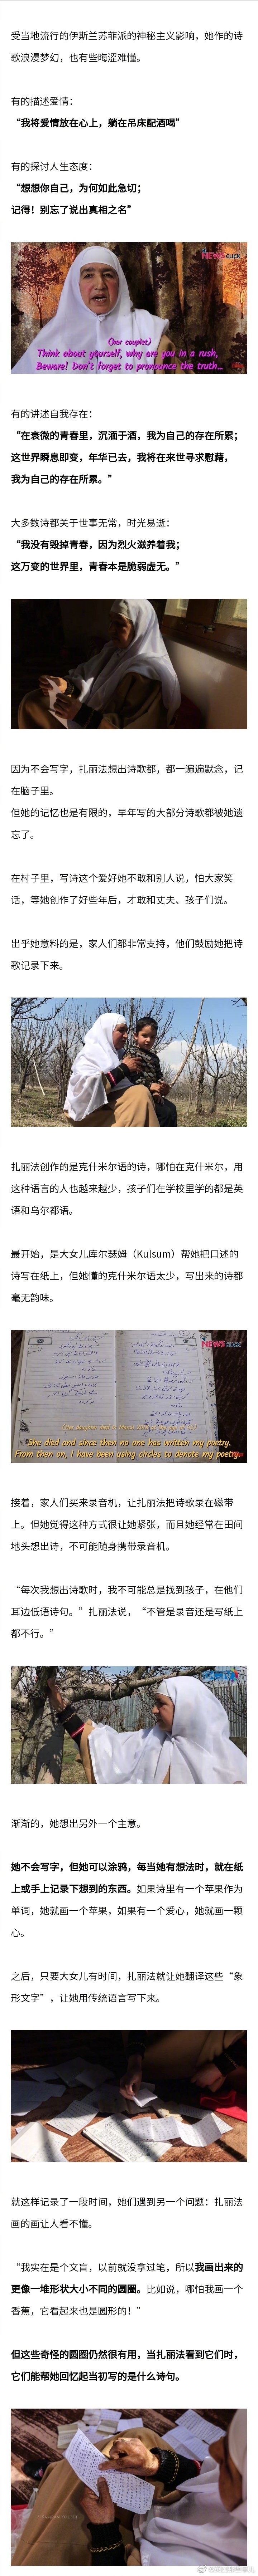 受当地流行的伊斯兰苏菲派的神秘主义影响，她作的诗
歌浪漫梦幻，也有些晦涩难懂。
有的描述爱情：
“我将爱情放在心上，躺在吊床配酒喝”
有的探讨人生态度：
“想想你自己，为何如此急切；
记得！别忘了说出真相之名”
NEWSCLICK
(her couplet)
Think about yourself, why are you in a rush,
Beware! Don't forget to pronounce the truth...
有的讲述自我存在：
“在衰微的青春里，沉湎于酒，我为自己的存在所累；
这世界瞬息即变，年华已去，我将在来世寻求慰藉，
我为自己的存在所累。”
大多数诗都关于世事无常，时光易逝：
“我没有毁掉青春，因为烈火滋养着我；
这万变的世界里，青春本是脆弱虚无。”
因为不会写字，扎丽法想出诗歌都，都一遍遍默念，记
在脑子里。
但她的记忆也是有限的，早年写的大部分诗歌都被她遗
忘了。
在村子里，写诗这个爱好她不敢和别人说，怕大家笑
话，等她创作了好些年后，才敢和丈夫、孩子们说。
出乎她意料的是，家人们都非常支持，他们鼓励她把诗
歌记录下来。
扎丽法创作的是克什米尔语的诗，哪怕在克什米尔，用
这种语言的人也越来越少，孩子们在学校里学的都是英
语和乌尔都语。
最开始，是大女儿库尔瑟姆（Kulsum）帮她把口述的
诗写在纸上，但她懂的克什米尔语太少，写出来的诗都
毫无韵味。
NEWSCLICK
She died and since then no one has written my poetry.
From then on, I have been using circles to denote my poetry.
接着，家人们买来录音机，让扎丽法把诗歌录在磁带
上。但她觉得这种方式很让她紧张，而且她经常在田间
地头想出诗，不可能随身携带录音机。
“每次我想出诗歌时，我不可能总是找到孩子，在他们
耳边低语诗句。”扎丽法说，“不管是录音还是写纸上
都不行。”
渐渐的，她想出另外一个主意。
她不会写字，但她可以涂鸦，每当她有想法时，就在纸
上或手上记录下想到的东西。如果诗里有一个苹果作为
单词，她就画一个苹果，如果有一个爱心，她就画一颗
心。
之后，只要大女儿有时间，扎丽法就让她翻译这些“象
形文字”，让她用传统语言写下来。
就这样记录了一段时间，她们遇到另一个问题：扎丽法
画的画让人看不懂。
“我实在是个文盲，以前就没拿过笔，所以我画出来的
更像一堆形状大小不同的圆圈。比如说，哪怕我画一个
香蕉，它看起来也是圆形的！”
但这些奇怪的圆圈仍然很有用，当扎丽法看到它们时，
它们能帮她回忆起当初写的是什么诗句。